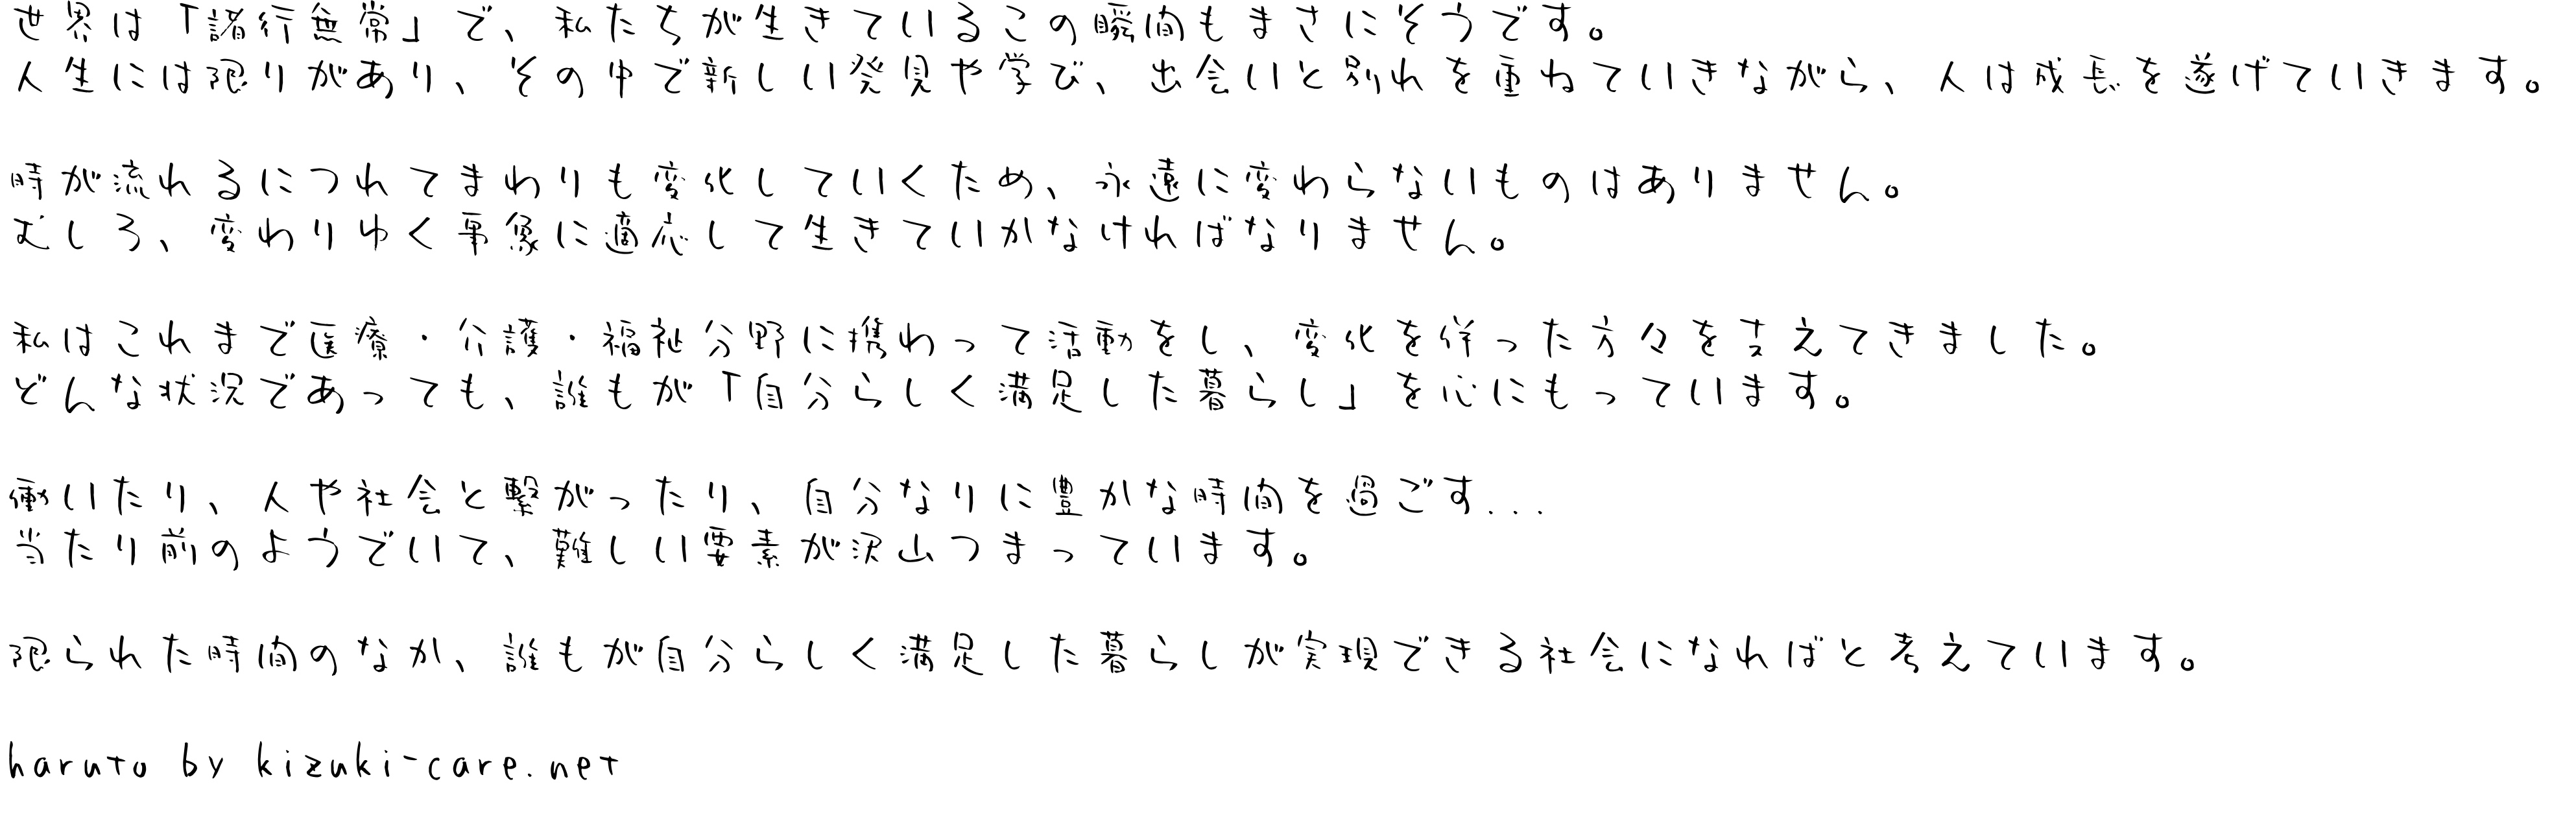 世界は「諸行無常」で、私たちが生きているこの瞬間もまさにそうです。
人生には限りがあり、その中で新しい発見や学び、出会いと別れを重ねていきながら、人は成長を遂げていきます。
時が流れるにつれてまわりも変化していくため、永遠に変わらないものはありません。
むしろ、変わりゆく事象に適応して生きていかなければなりません。
私はこれまで医療・介護・福祉分野に携わって活動をし、変化を伴った方々を支えてきました。
どんな状況であっても、誰もが「自分らしく満足した暮らし」を心にもっています。
働いたり、人や社会と繋がったり、自分なりに豊かな時間を過ごす...
当たり前のようでいて、難しい要素が沢山つまっています。
限られた時間のなか、誰もが自分らしく満足した暮らしが実現できる社会になればと考えています。
haruto by kizuki-care.net